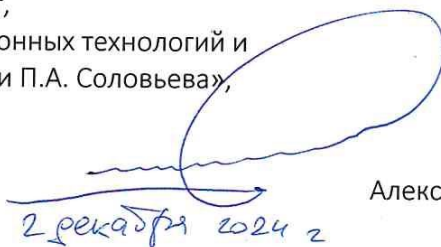 онных технологий и
и П.А. Соловьева»,
Алекс
2 декабря 2024 г